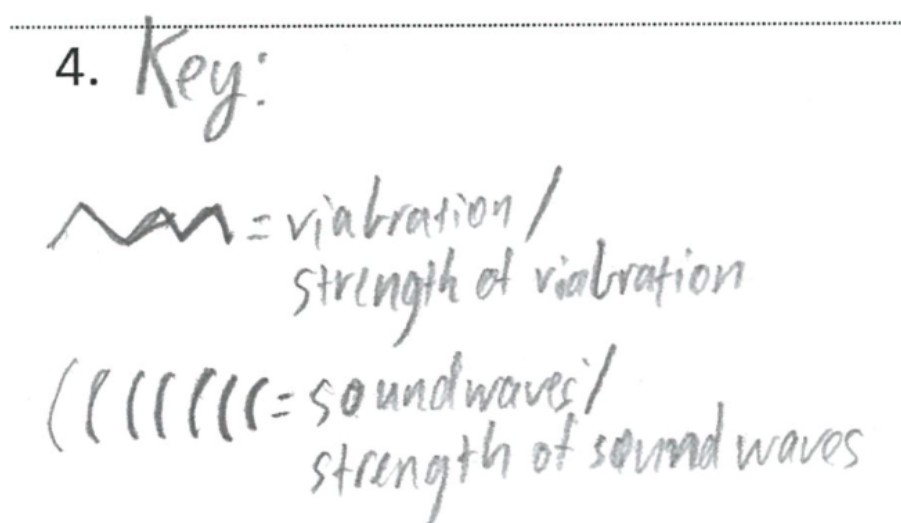 4. Key:
= viabration /
strength of viabration
= soundwaves /
strength of sound waves